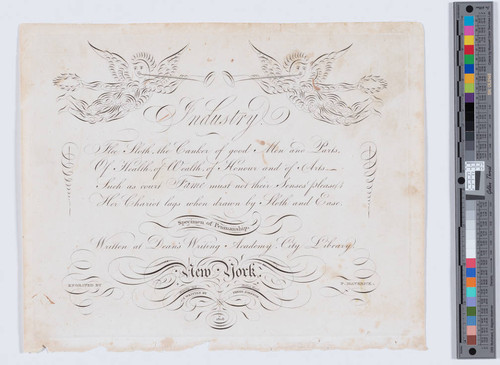 Industry.
Flee Sloth, the Canker of good Men and Parts,
Of Health, of Wealth, of Honour and of Arts
Such as court Fame must not their Senses please,
Her Chariot lags when drawn by Sloth and Ease.
Specimen of Penmanship
Written at Dean's Writing Academy City Library
New York.
ENGRAVED BY
P. MAVERICK